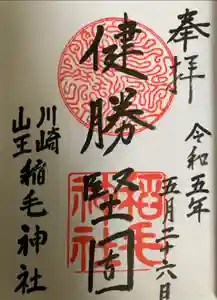 奉拝
令和五年
五月二十六日
健勝
堅固
川崎
山王
稲毛神社
稲毛
神社